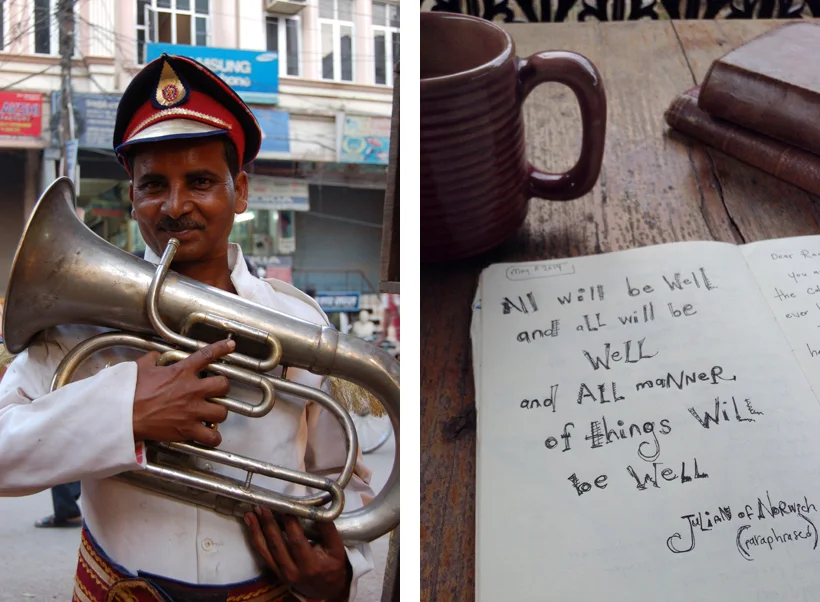 SUNG
phone
May 8 2014
All will be Well
and all will be
Well
and All manner
of things Will
be Well
Julian of Norwich
(paraphrased)
Dear Rea
you a
the
ever